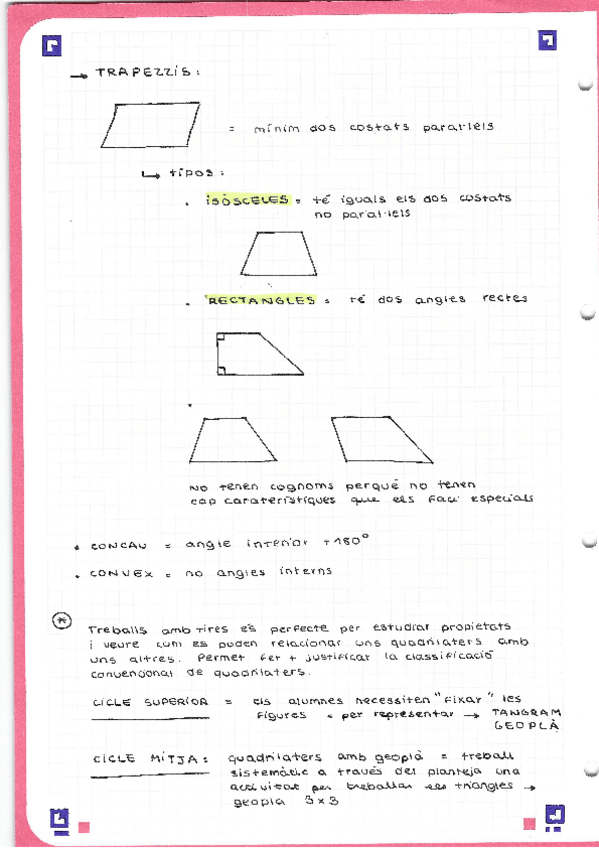 → TRAPEZZIS:
= mínim dos costats paral·lels
↳ tipos:
. ISÒSCELES = té iguals els dos costats
no paral·lels
. RECTANGLES = té dos angles rectes
No tenen cognoms perquè no tenen
cap caraterístiques que els faci especials
• CONCAU = angle interior +180°
• CONVEX = no angles interns
* Treballs amb tires és perfecte per estudiar propietats
i veure com es poden relacionar uns quadrilaters amb
uns altres. Permet fer + justificar la classificació
convencional de quadrilaters.
CICLE SUPERIOR = els alumnes necessiten "fixar" les
figures • per representar → TANGRAM
GEOPLÀ
CICLE MITJA: quadrilaters amb geoplà = treball
sistemàtic a través del planteja una
activitat per treballar els triangles →
geopla 3x3